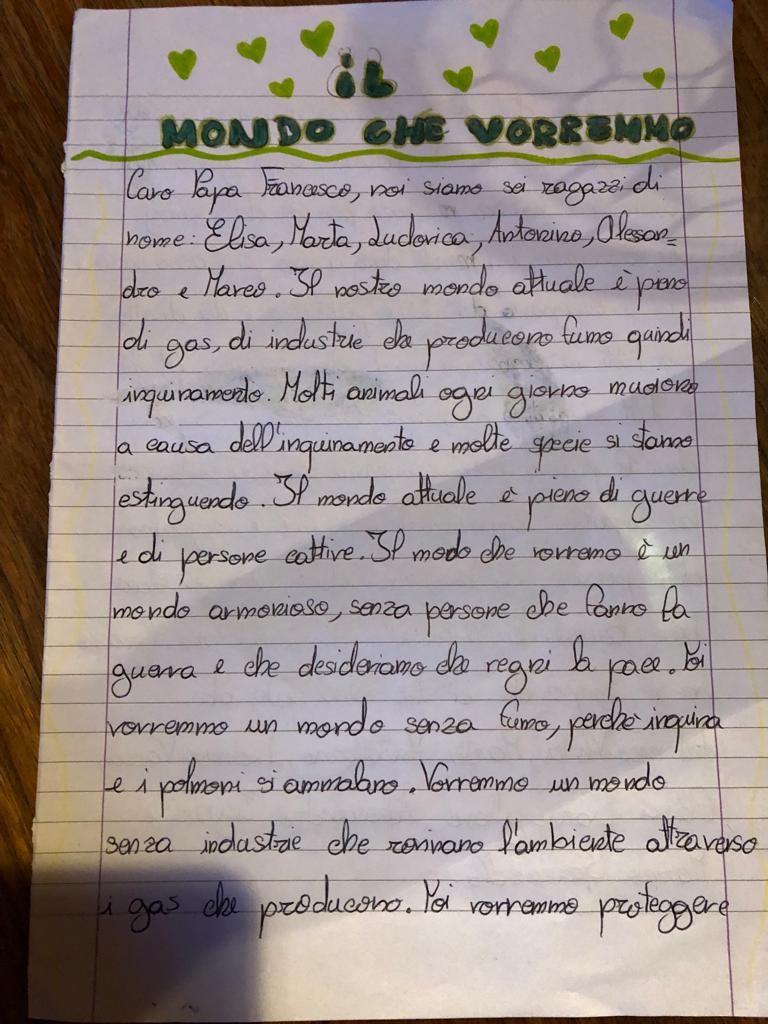 IL
MONDO CHE VORREMMO
Caro Papa Francesco, noi siamo sei ragazzi di
nome: Elisa, Marta, Ludovica, Antonino, Alessan=
dro e Marco. Il nostro mondo attuale è pieno
di gas, di industrie che producono fumo quindi
inquinamento. Molti animali ogni giorno muoiono
a causa dell'inquinamento e molte specie si stanno
estinguendo. Il mondo attuale è pieno di guerre
e di persone cattive. Il modo che vorremo è un
mondo armonioso, senza persone che fanno la
guerra e che desideriamo che regni la pace. Noi
vorremmo un mondo senza fumo, perché inquina
e i polmoni si ammalano. Vorremmo un mondo
senza industrie che rovinano l'ambiente attraverso
i gas che producono. Noi vorremmo proteggere